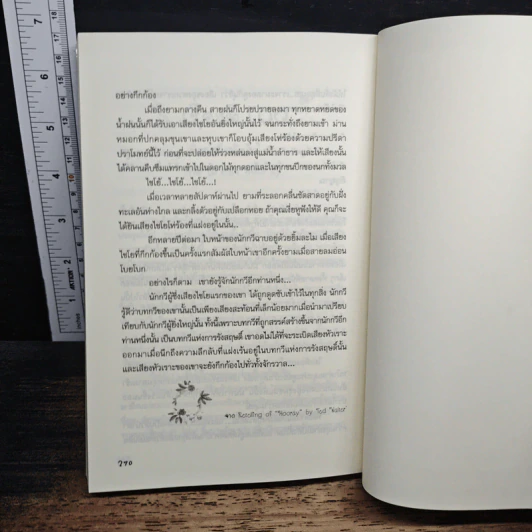 อย่างกึกก้อง
เมื่อถึงยามกลางคืน สายฝนก็โปรยปรายลงมา ทุกหยาดหยดของ
น้ำฝนนั้นก็ได้รับเอาเสียงไชโยอันยิ่งใหญ่นั้นไว้ จนกระทั่งถึงยามเช้า ม่าน
หมอกที่ปกคลุมขุนเขาและหุบเขาก็โอบอุ้มเสียงโห่ร้องด้วยความปรีดา
ปราโมทย์นี้ไว้ ก่อนที่จะปล่อยให้ร่วงหล่นลงสู่แม่น้ำลำธาร และให้เสียงนั้น
ได้คลานคืบซึมแทรกเข้าไปในดอกไม้ทุกดอกและในทุกขนปีกของนกทั้งมวล
ไชโย้...ไชโย้...ไชโย้...!
เมื่อเวลาหลายสัปดาห์ผ่านไป ยามที่ระลอกคลื่นซัดสาดอยู่กับฝั่ง
ทะเลอันห่างไกล และกลิ้งตัวอยู่กับเปลือกหอย ถ้าคุณเงี่ยหูฟังให้ดี คุณก็จะ
ได้ยินเสียงไชโยโห่ร้องที่แฝงอยู่ในนั้น..
อีกหลายปีต่อมา ใบหน้าของนักกวีฉาบอยู่ด้วยยิ้มละไม เมื่อเสียง
ไชโยที่กึกก้องขึ้นเป็นครั้งแรกสัมผัสใบหน้าเขาอีกครั้งยามเมื่อสายลมอ่อน
โบยโบก
อย่างไรก็ตาม เขายังรู้จักนักกวีอีกท่านหนึ่ง...
นักกวีผู้ซึ่งเสียงไชโยแรกของเขา ได้ถูกดูดซับเข้าไว้ในทุกสิ่ง นักกวี
รู้ดีว่าบทกวีของเขานั้นเป็นเพียงเสียงสะท้อนที่เล็กน้อยมากเมื่อนำมาเปรียบ
เทียบกับนักกวีผู้ยิ่งใหญ่นั้น ทั้งนี้เพราะบทกวีที่ถูกสรรค์สร้างขึ้นจากนักกวีอีก
ท่านหนึ่งนั้น เป็นบทกวีแห่งการรังสฤษดิ์ เขาอดไม่ได้ที่จะระเบิดเสียงหัวเราะ
ออกมาเมื่อนึกถึงความลึกลับที่แฝงเร้นอยู่ในบทกวีแห่งการรังสฤษดิ์นั้น
และเสียงหัวเราะของเขาจะยังกึกก้องไปทั่วทั้งจักรวาล...
จาก Reading of "Hooray" by Ted
๒๙๐